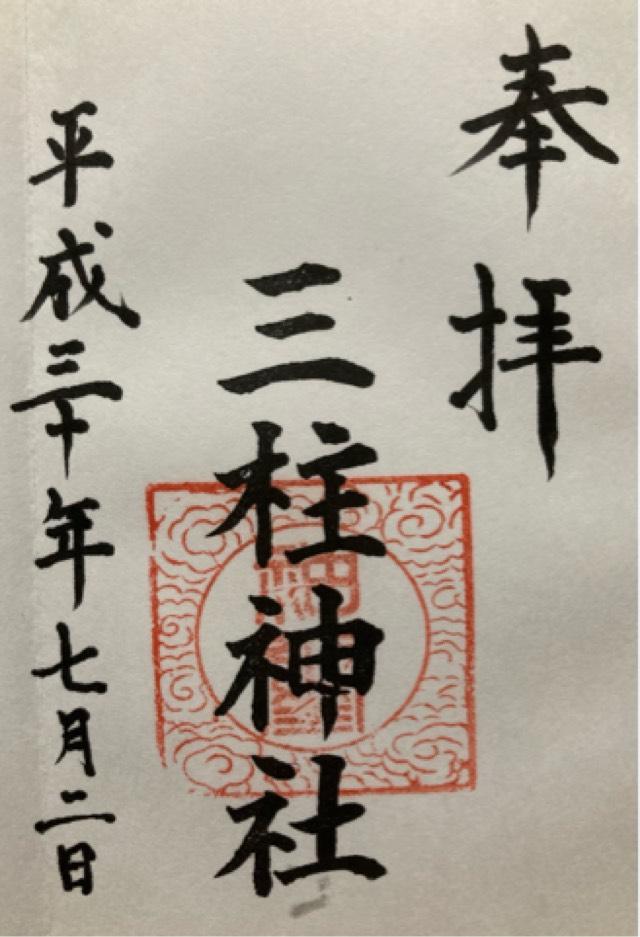 奉拝
三柱神社
平成三十年七月二日